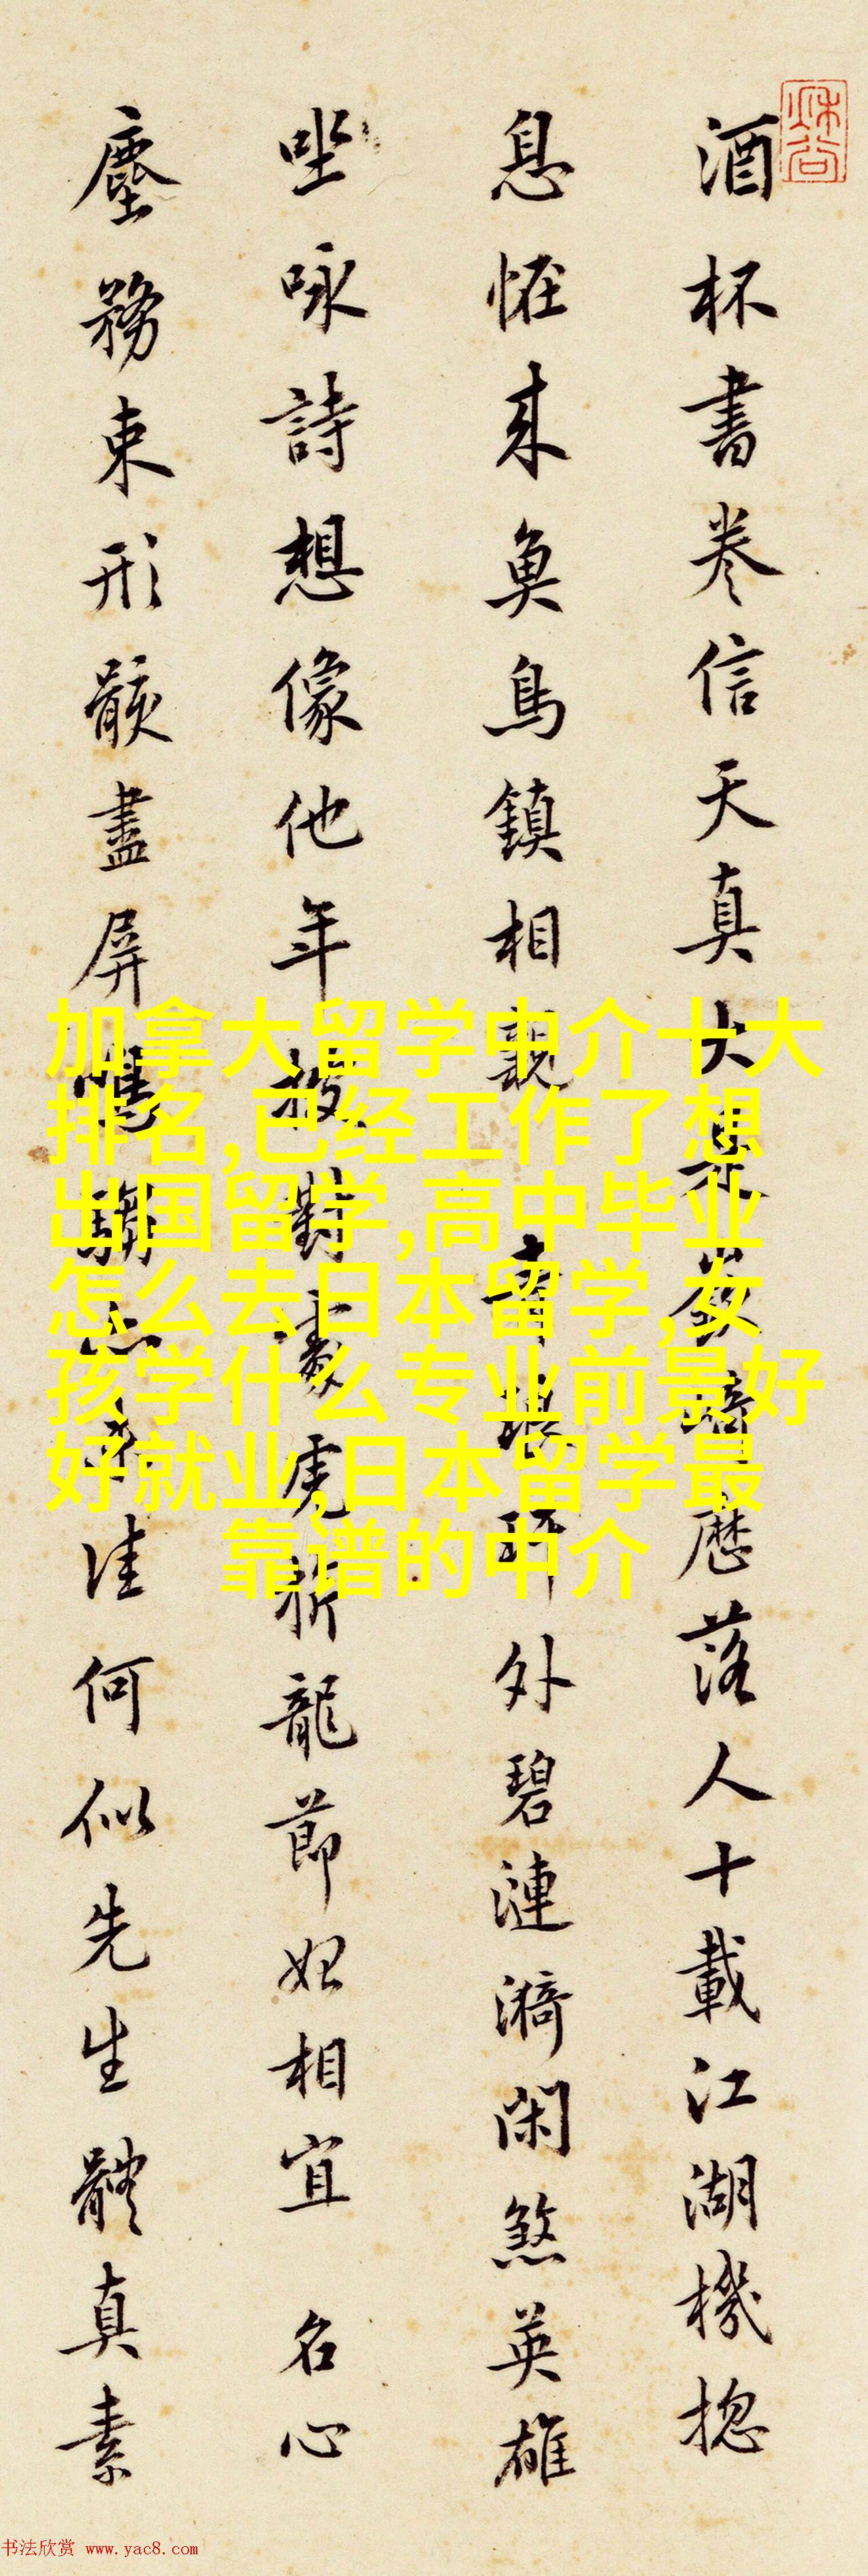 酒杯書卷信天真大
落人十載江湖機揔
息恠來魚鳥鎮相親
外碧漣漪閑煞英雄
坐咏詩想像他年
龍節妃相宜 名心
塵務束形骸盡屏
佳何似先生體真素
加拿大留学中介十大
排名,已经工作了想
出国留学,高中毕业
怎么去日本留学,女
孩学什么专业前景好
好就业,日本留学最
靠谱的中介
书法欣赏 www.yac8.com